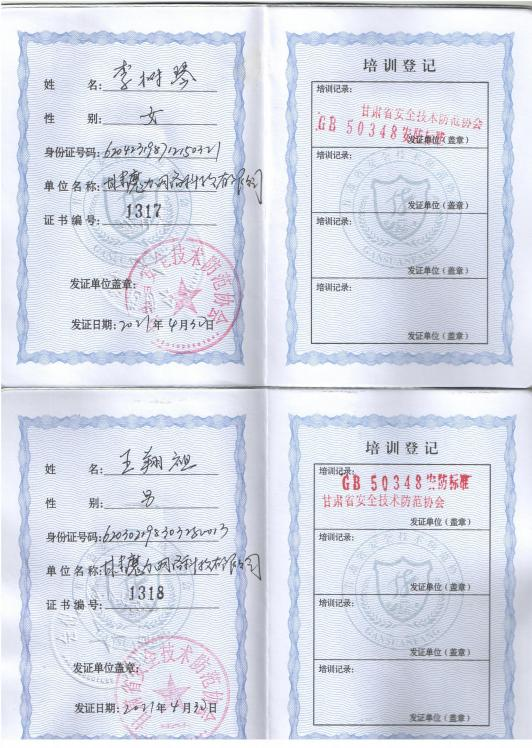 姓 名:李树琴
性 别:女
身份证号码:
单位名称:甘肃魔方网络科技有限公司
证书编号:1317
发证单位盖章:
甘肃省安全技术防范协会
发证日期:2021年4月30日
培训登记
培训记录:
甘肃省安全技术防范协会
GB 50348安防标准
发证单位(盖章)
培训记录:
发证单位(盖章)
培训记录:
发证单位(盖章)
培训记录:
发证单位(盖章)
姓 名:王翔祖
性 别:男
身份证号码:
单位名称:甘肃魔方网络科技有限公司
证书编号:1318
发证单位盖章:
甘肃省安全技术防范协会
发证日期:2021年4月30日
培训登记
培训记录:
GB 50348安防标准
甘肃省安全技术防范协会
发证单位(盖章)
培训记录:
发证单位(盖章)
培训记录:
发证单位(盖章)
培训记录:
发证单位(盖章)